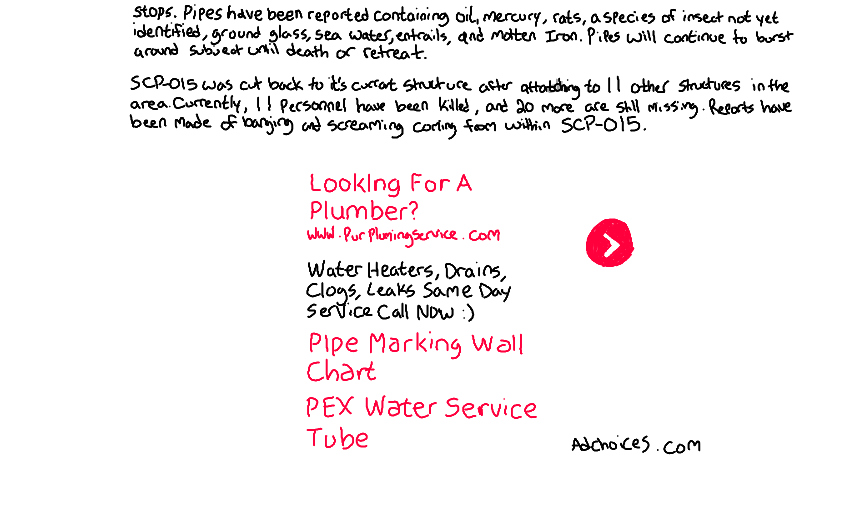 stops. Pipes have been reported containing oil, mercury, rats, a species of insect not yet
identified, ground glass, sea water, entrails, and molten Iron. Pipes will continue to burst
around subject until death or retreat.
SCP-015 was cut back to it's currat structure after attatching to 11 other structures in the
area. Currently, 11 Personnel have been killed, and 20 more are still missing. Reports have
been made of banging and screaming coming from within SCP-015.
Looking For A
Plumber?
www.PurPlumingService.com
Water Heaters, Drains,
Clogs, Leaks Same Day
Service Call Now :)
Pipe Marking Wall
Chart
PEX Water Service
Tube
Adchoices.com